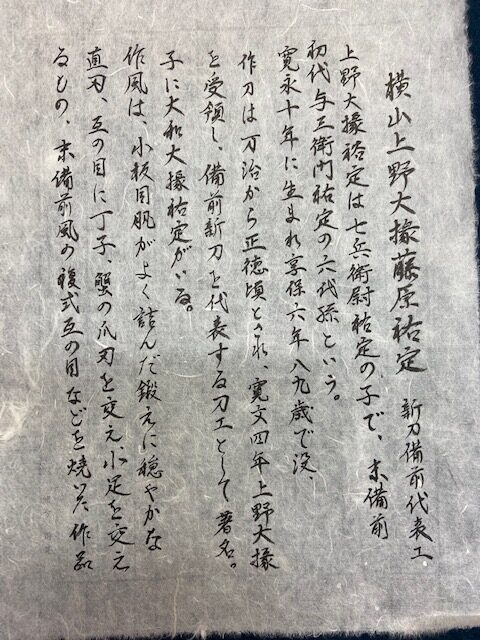 横山上野大掾藤原祐定 新刀備前代表工
上野大掾祐定は七兵衛尉祐定の子で、末備前
初代与三衛門祐定の六代孫という。
寛永十年に生まれ享保六年八九歳で没、
作刀は万治から正徳頃とされ、寛文四年上野大掾
を受領し、備前新刀を代表する刀工として著名。
子に大和大掾祐定がいる。
作風は、小板目肌がよく詰んだ鍛えに穏やかな
直刃、互の目に丁子、蟹の爪刃を交え小足を交え
るもの、末備前風の複式互の目などを焼いた作品